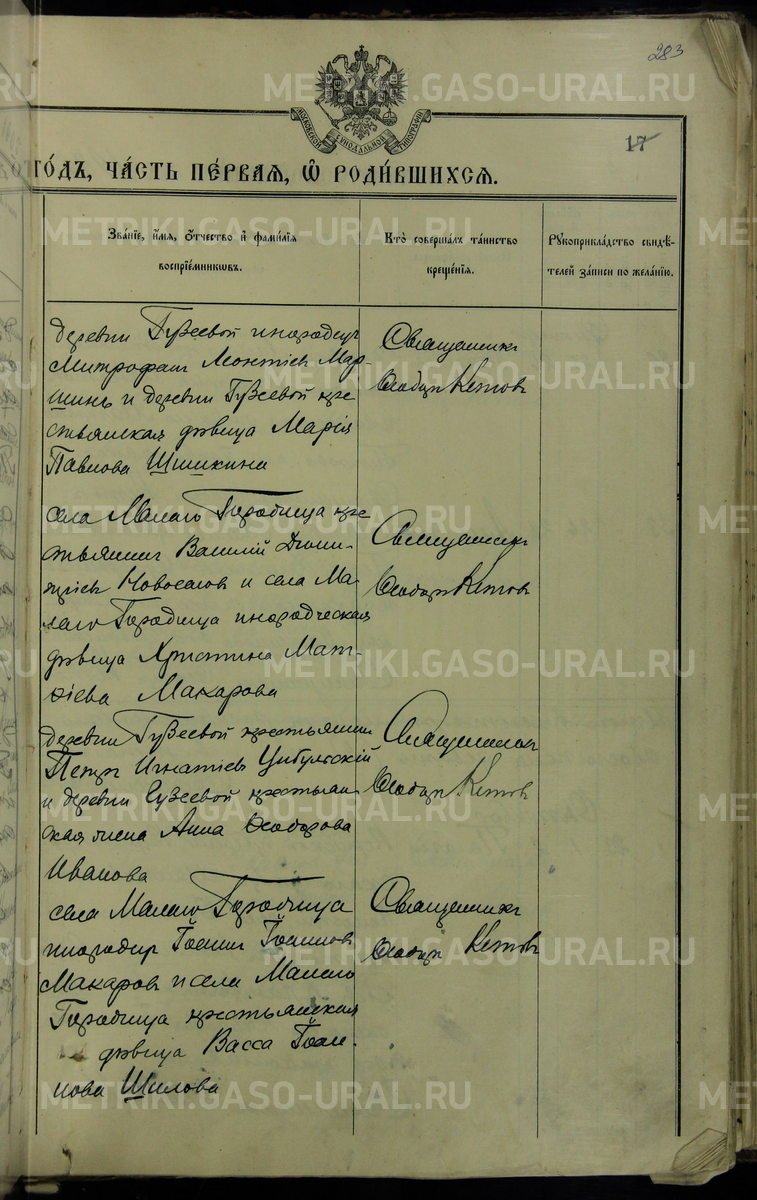 283
МОСКОВСКОЙ СѴНОДАЛЬНОЙ ТИПОГРАФІИ
17
ГО́ДЪ, ЧА́СТЬ ПЕ́РВАЯ, Ѽ РОДИ́ВШИХСЯ.
Зва́ніе, и́мя, ѻ́тчество и҆ фами́лія
воспріе́мниковъ.
Кто̀ совершалъ та́инство
креще́нія.
Рꙋкоприкла́дство свидѣ́-
телей за́писи по жела́нію.
деревни Гузеевой инородецъ
Митрофанъ Леонтіев Мар
шинъ и деревни Гузеевой кре
стьянская дѣвица Марія
Павлова Шишкина
Священникъ
Ѳеодоръ Кетовъ
села Малаго Городища кре
стьянинъ Василій
Новоселовъ и села Ма-
лаго Городища инородческая
дѣвица Христина Мат-
ѳіева Макарова
Священникъ
Ѳеодоръ Кетовъ
деревни Гузеевой крестьянин
Петръ Игнатіевъ Цибульскій
и деревни Гузеевой крестьян
ская жена Анна Ѳеодорова
Иванова
Священникъ
Ѳеодоръ Кетовъ
села Малаго Городища
инородецъ Іоаннъ Іоанновъ
Макаровъ и села Малаго
Городища крестьянская
дѣвица Васса Іоан-
нова Шилова
Священникъ
Ѳеодоръ Кетовъ
METRIKI.GASO-URAL.RU